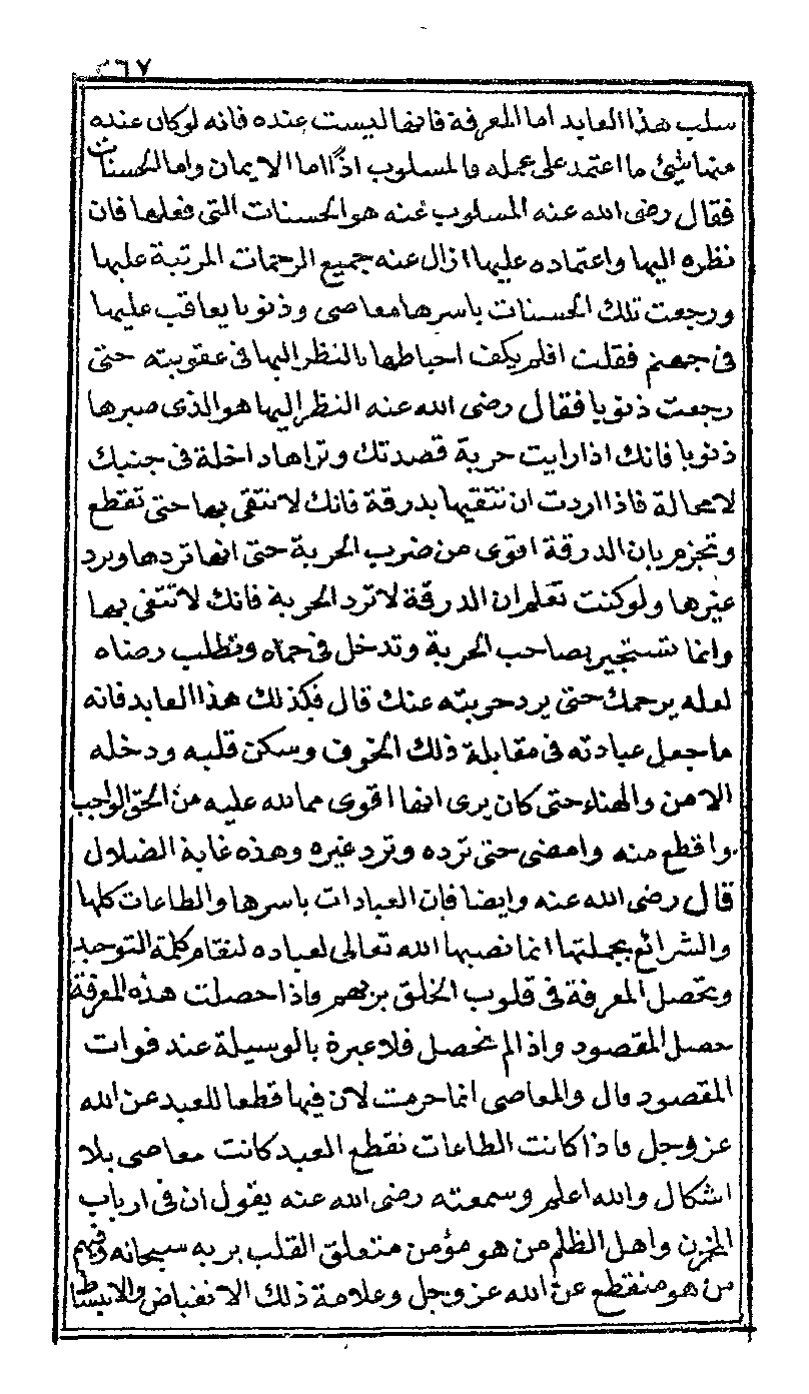 ٦٧
سلب هذا العابد اما المعرفة فانها ليست عنده فانه لو كان عنده
منها شيئ ما اعتمد على عمله فالمسلوب اذًا اما الايمان واما الحسنات
فقال رضى الله عنه المسلوب عنه هو الحسنات التى فعلها فان
نظره اليها واعتماده عليها ازال عنه جميع الرحمات المرتبة عليها
ورجعت تلك الحسنات باسرها معاصى وذنوبا يعاقب عليها
فى جهنم فقلت افلم يكف احباطها بالنظر اليها فى عقوبته حتى
رجعت ذنوبا فقال رضى الله عنه النظر اليها هو الذى صيرها
ذنوبا فانك اذا رايت حربة قصدتك وتراها داخلة فى جنبك
لا محالة فاذا اردت ان تتقيها بدرقة فانك لا تتقى بها حتى تقطع
وتجزم بان الدرقة اقوى من ضرب الحربة حتى انها تردها وترد
غيرها ولو كنت تعلم ان الدرقة لا ترد الحربة فانك لا تتقى بها
وانما تستجير بصاحب الحربة وتدخل فى حماه وتطلب رضاه
لعله يرحمك حتى يرد حربته عنك قال فكذلك هذا العابد فانه
ما جعل عبادته فى مقابلة ذلك الخوف وسكن قلبه ودخله
الامن والهناء حتى كان يرى انها اقوى مما لله عليه من الحق الواجب
واقطع منه وامضى حتى ترده وترد غيره وهذه غاية الضلال
قال رضى الله عنه وايضا فان العبادات باسرها والطاعات كلها
والشرائع بجملتها انما نصبها الله تعالى لعباده لتقام كلمة التوحيد
وتحصل المعرفة فى قلوب الخلق بربهم واذا حصلت هذه المعرفة
حصل المقصود واذا لم تحصل فلا عبرة بالوسيلة عند فوات
المقصود قال والمعاصى انما حرمت لان فيها قطعا للعبد عن الله
عز وجل فاذا كانت الطاعات تقطع العبد كانت معاصى بلا
اشكال والله اعلم وسمعته رضى الله عنه يقول ان فى ارباب
المخزن واهل الظلم من هو مؤمن متعلق القلب بربه سبحانه وفيهم
من هو منقطع عن الله عز وجل وعلامة ذلك الانقباض والانبساط